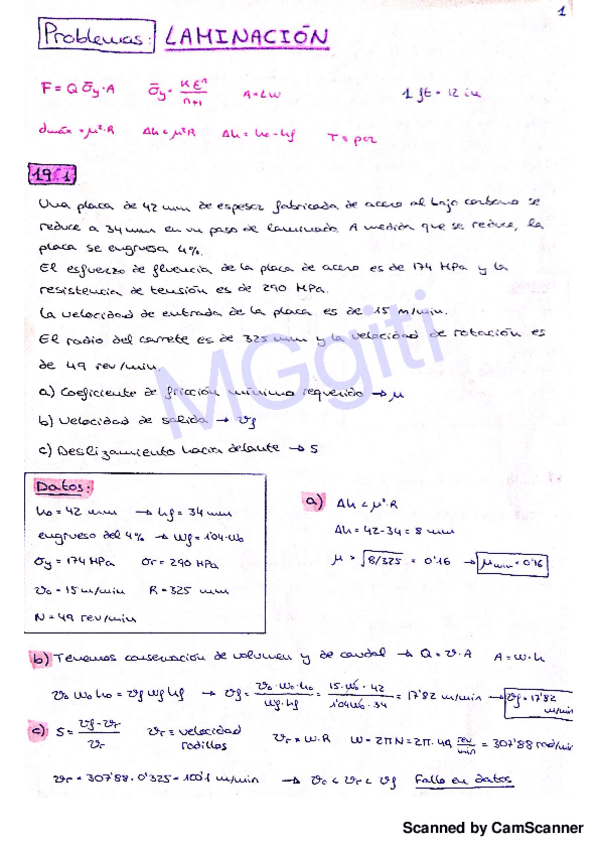 1
Problemas: LAMINACIÓN
F = Q σ̄y · A   σ̄y = K εⁿ / n+1   A = L W   1 ft = 12 in
dmáx = μ²·R   Δh < μ²R   Δh = ho - hf   T = par
19.1
Una placa de 42 mm de espesor fabricada de acero al bajo carbono se
reduce a 34 mm en un paso de laminado. A medida que se reduce, la
placa se engruesa 4%.
El esfuerzo de fluencia de la placa de acero es de 174 MPa y la
resistencia de tensión es de 290 MPa.
La velocidad de entrada de la placa es de 15 m/min.
El radio del carrete es de 325 mm y la velocidad de rotación es
de 49 rev/min
a) Coeficiente de fricción mínimo requerido → μ
b) Velocidad de salida → vf
c) Deslizamiento hacia delante → S
MGgiti
Datos:
ho = 42 mm → hf = 34 mm
engrueso del 4% → wf = 1'04·wo
σy = 174 MPa   σr = 290 MPa
vo = 15 m/min   R = 325 mm
N = 49 rev/min
a) Δh < μ²·R
Δh = 42-34 = 8 mm
μ > √8/325 = 0'16 → μmin = 0'16
b) Tenemos conservación de volumen y de caudal → Q = v·A   A = w·h
vo wo ho = vf wf hf → vf = vo·wo·ho / wf·hf = 15·wo·42 / 1'04wo·34 = 17'82 m/min → vf = 17'82 m/min
c) S = vf - vr / vr   vr = velocidad rodillos   vr = w·R   W = 2πN = 2π·49 rev/min = 307'88 rad/min
vr = 307'88·0'325 = 100'1 m/min → vo < vr < vf   Fallo en datos
Scanned by CamScanner